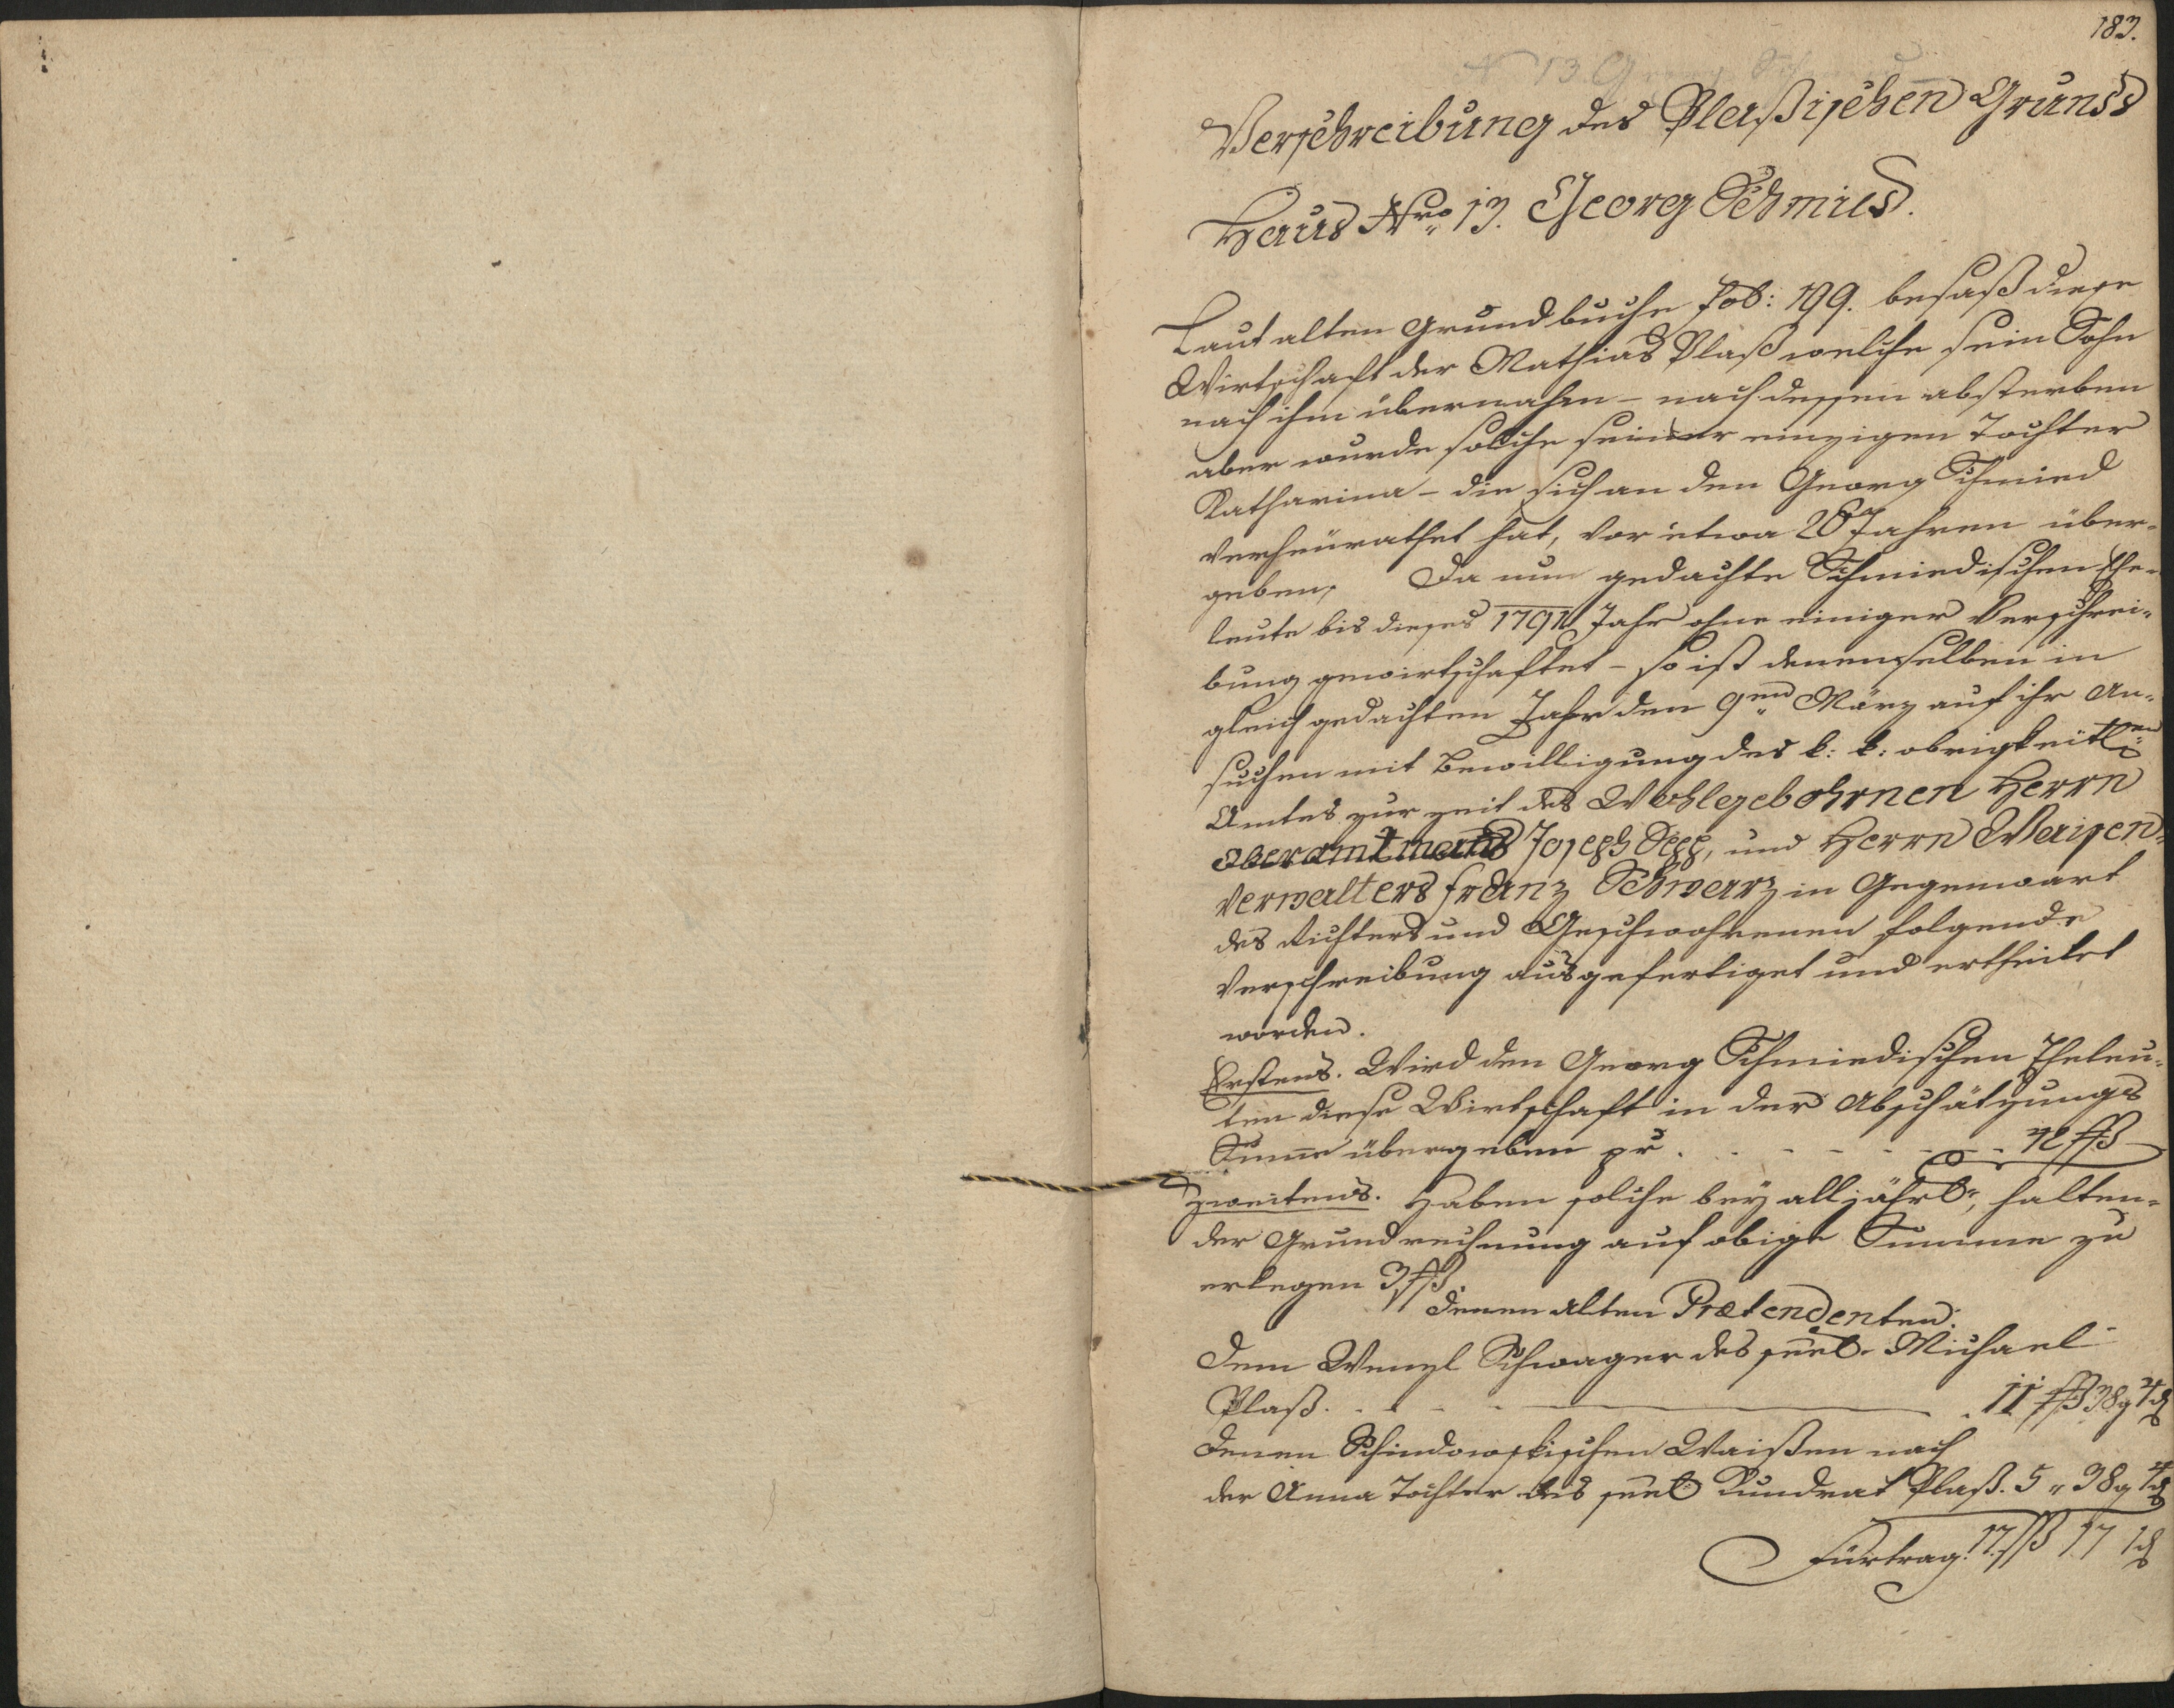 183.
N 13 Georg Schmied
Verschreibung des Plaßischen Grunds
Haus Nro 13. Georg Schmied.
Laut alten Grundbuche fol: 199. besaß diese
Wirtschaft der Mathias Plaß welche sein Sohn
nach ihm übernahm – nach dessen absterben
aber wurde solche seiner einzigen Tochter
Katharina – die sich an den Georg Schmied
verheürathet hat, vor etwa 26 Jahren über-
geben, Da nun gedachte Schmiedischen Ehe-
leute bis dieses 1791 Jahr ohne einiger Verschrei-
bung gewirtschaftet – so ist denenselben in
gleich gedachten Jahr den 9ten März auf ihr An-
suchen mit Bewilligung des k: k: obrigkeitlen
Amtes zur zeit des Wohlgebohrnen Herrn
Oberamtmans Joseph Sepp, und Herrn Waisen-
verwalters Franz Schwarz in Gegenwart
des Richters und Geschwohrenen folgende
Verschreibung ausgefertiget und ertheilet
worden.
Erstens. Wird den Georg Schmiedischen Eheleu-
ten diese Wirtschaft in der Abschätzungs
Sume übergeben pr 72 ßß
Zweitens. Haben solche bey alljährl. halten-
der Grundrechnung auf obige Summe zu
erlegen 3 ßß.
Denen Alten Prætendenten.
Dem Wenzl Schwager des seel. Michael
Plaß. 11 ßß 38 g 4 d
Denen Schindowskischen Waißen nach
der Anna Tochter des seel Kundrat Plaß. 5 " 38 g 4 d
Fürtrag. 17 ßß 17 1 d